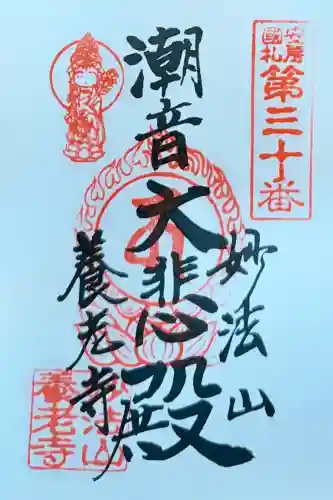 安房
國札
第三十番
潮音
大悲殿
妙法山
養老寺
妙法山
養老寺